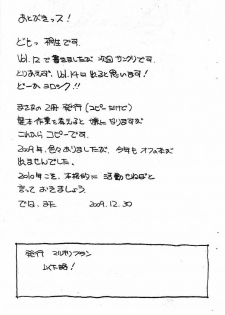 あとがきっス！
どもっ 桐生です。
Vol.12で書きましたが 次回サンクリで
とりあえず、Vol.14は出ると思います！
どーかヨロシク!!
まさかの2冊発行（コピーだけど）
製本作業を考えると 嫌になりますが
これからコピーです。
2009年、色々ありましたが、今年もオフ本が
出せませんでした。
2010年こそ、本格的に活動せねばと
言っておきましょう。
では、また 2009.12.30
発行 マルボンプラン
以下略！